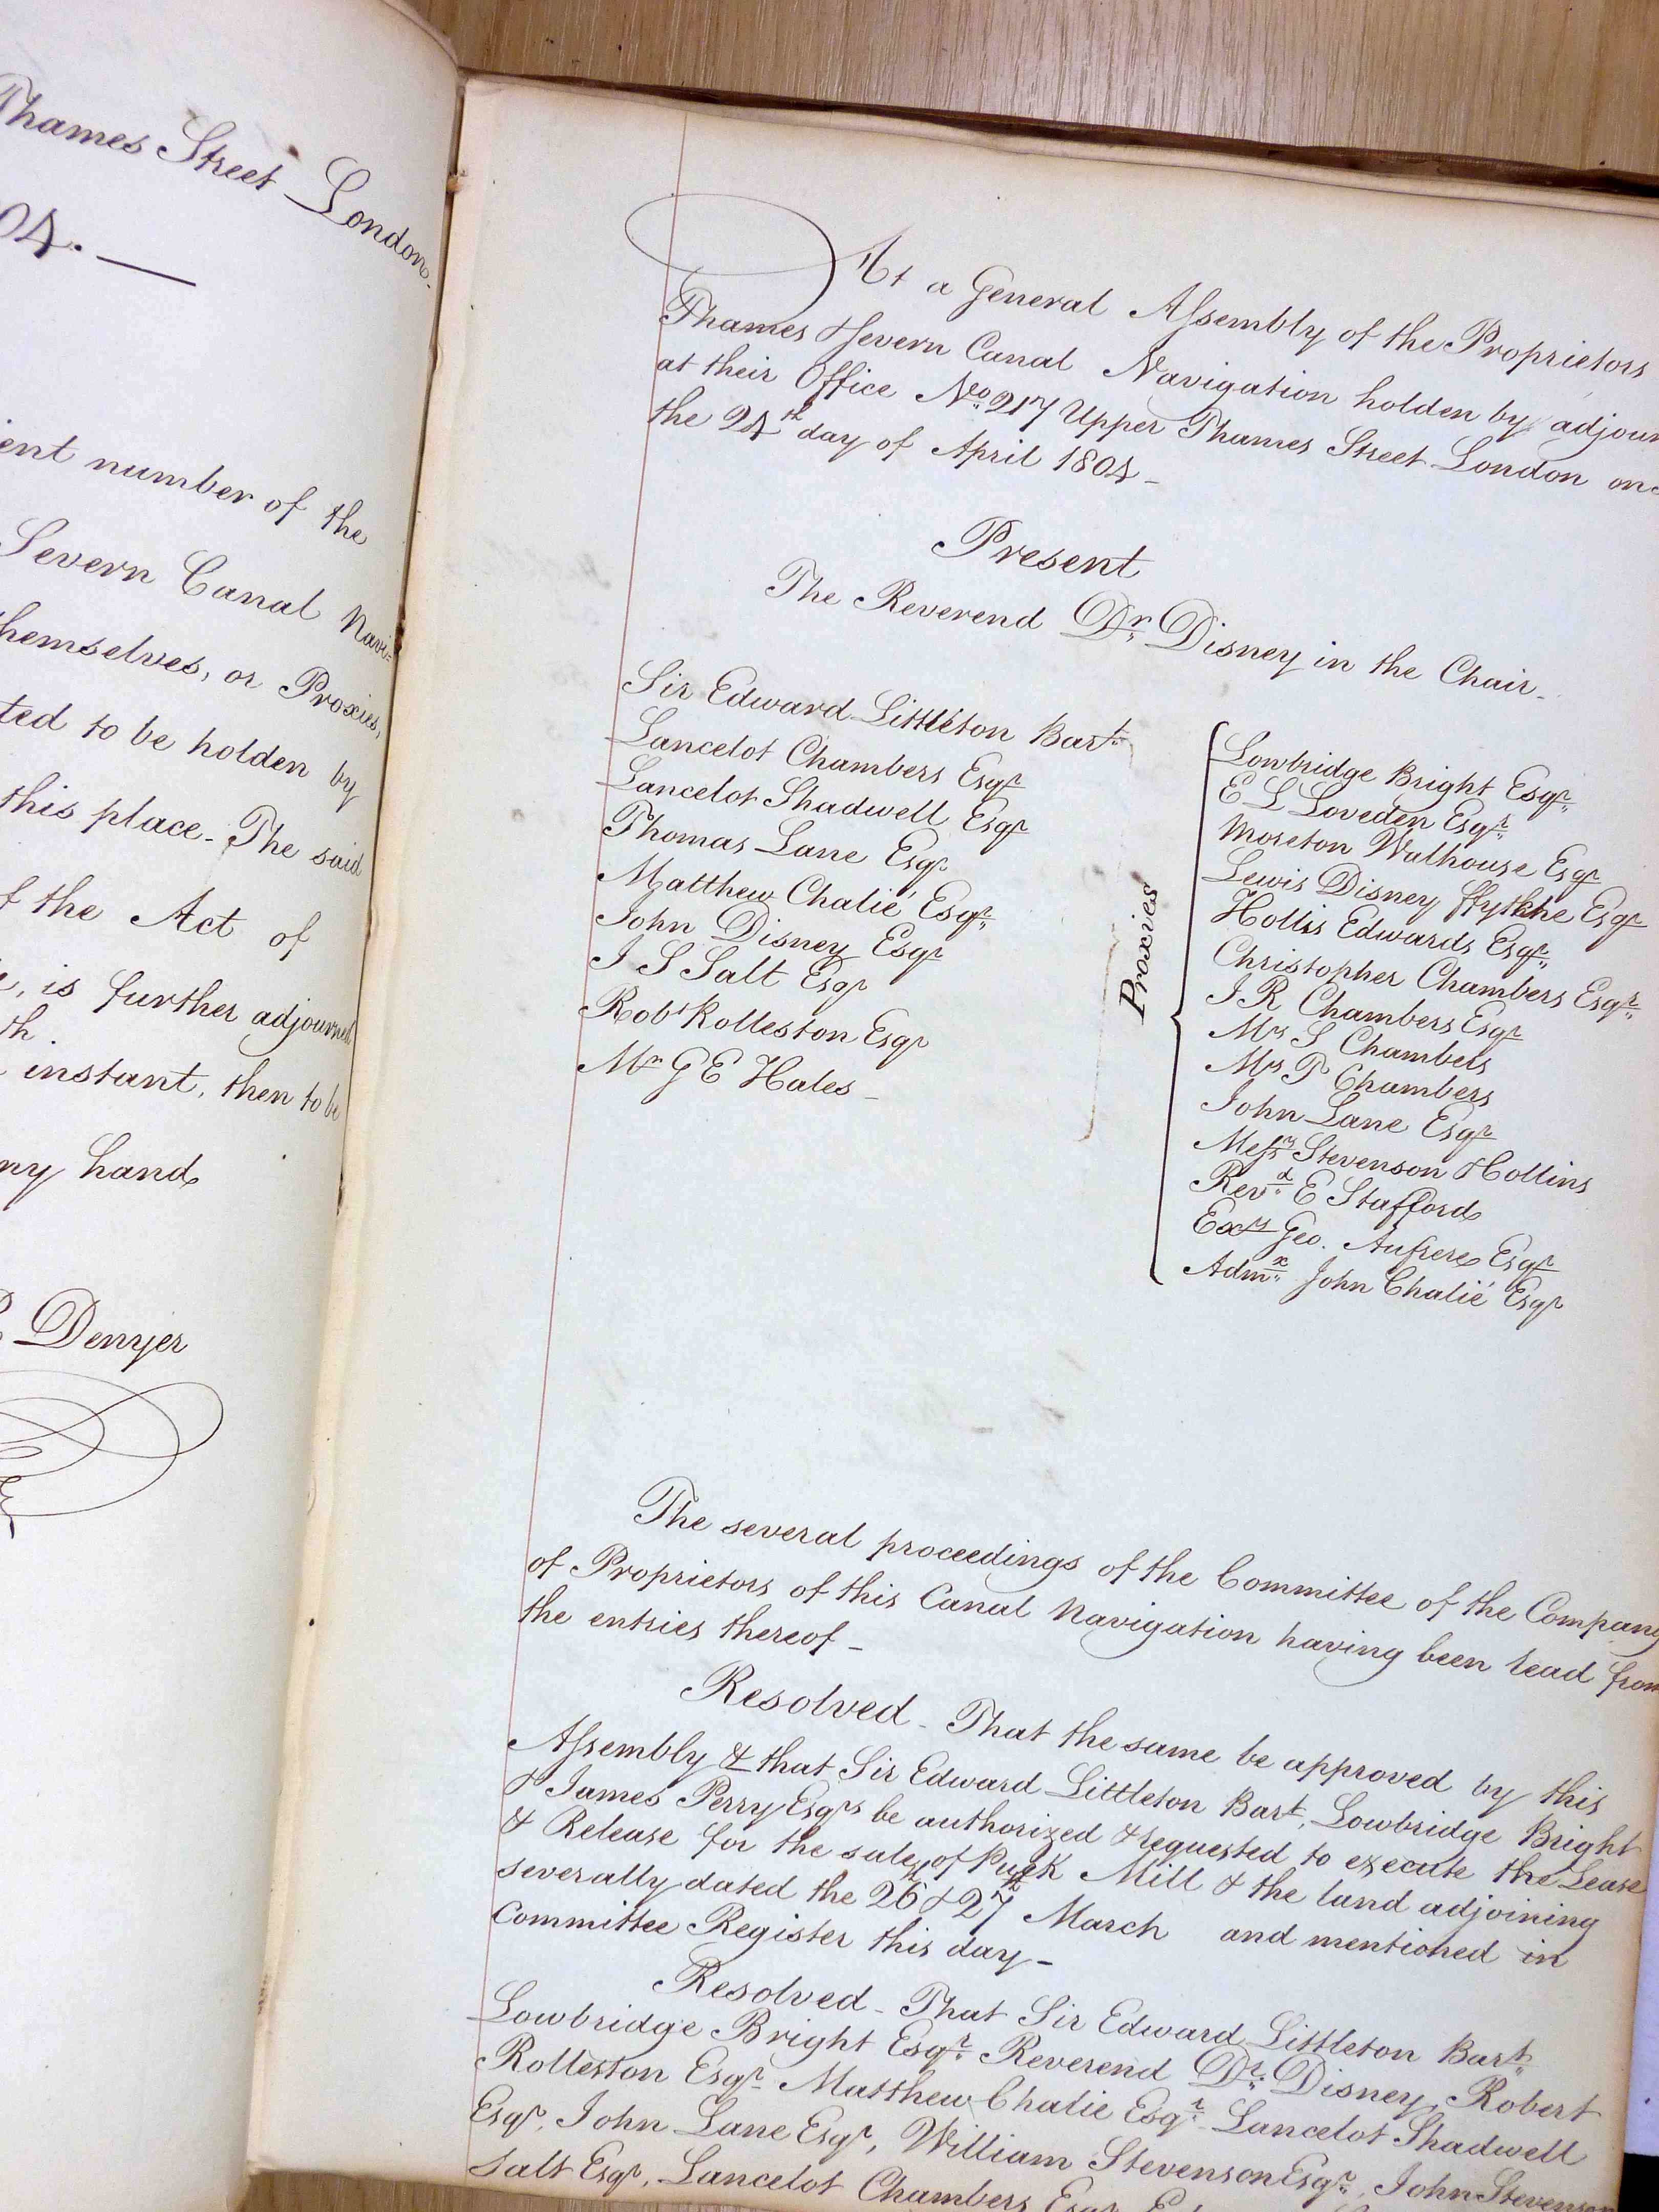 Thames Street London.
04. —
ent number of the
Severn Canal Navi=
hemselves, or Proxies,
ted to be holden by
this place - The said
f the Act of
is further adjourned
th
instant, then to be
my hand
Denyer
At a General Assembly of the Proprietors
Thames & Severn Canal Navigation holden by adjourn
at their Office No. 217 Upper Thames Street London on
the 24th day of April 1804 -
Present
The Reverend Dr. Disney in the Chair -
Sir Edward Littleton Bart.
Lancelot Chambers Esqr
Lancelot Shadwell Esqr
Thomas Lane Esqr
Matthew Chalié Esqr.
John Disney Esqr
J S Salt Esqr
Robt Rolleston Esqr
Mr G E Hales -
Proxies
Lowbridge Bright Esqr.
E L Loveden Esqr.
Moreton Walhouse Esqr
Lewis Disney ffytche Esqr
Hollis Edwards Esqr.
Christopher Chambers Esqr.
J R Chambers Esqr
Mrs S Chambers
Mrs P Chambers
John Lane Esqr
Messrs Stevenson & Collins
Revd. E Stafford
Exrs Geo. Aufrere Esqr
Admx. John Chalié Esqr
The several proceedings of the Committee of the Company
of Proprietors of this Canal Navigation having been read from
the entries thereof -
Resolved - That the same be approved by this
Assembly & that Sir Edward Littleton Bart, Lowbridge Bright
& James Perry Esqrs be authorized & requested to execute the Lease
& Release for the sale of Puck Mill & the land adjoining
severally dated the 26th & 27th March and mentioned in
Committee Register this day -
Resolved - That Sir Edward Littleton Bart.
Lowbridge Bright Esqr. Reverend Dr. Disney, Robert
Rolleston Esqr. Matthew Chalie Esqr. Lancelot Shadwell
Esqr, John Lane Esqr, William Stevenson Esqr., John Stevenson
Salt Esqr, Lancelot Chambers Esqr